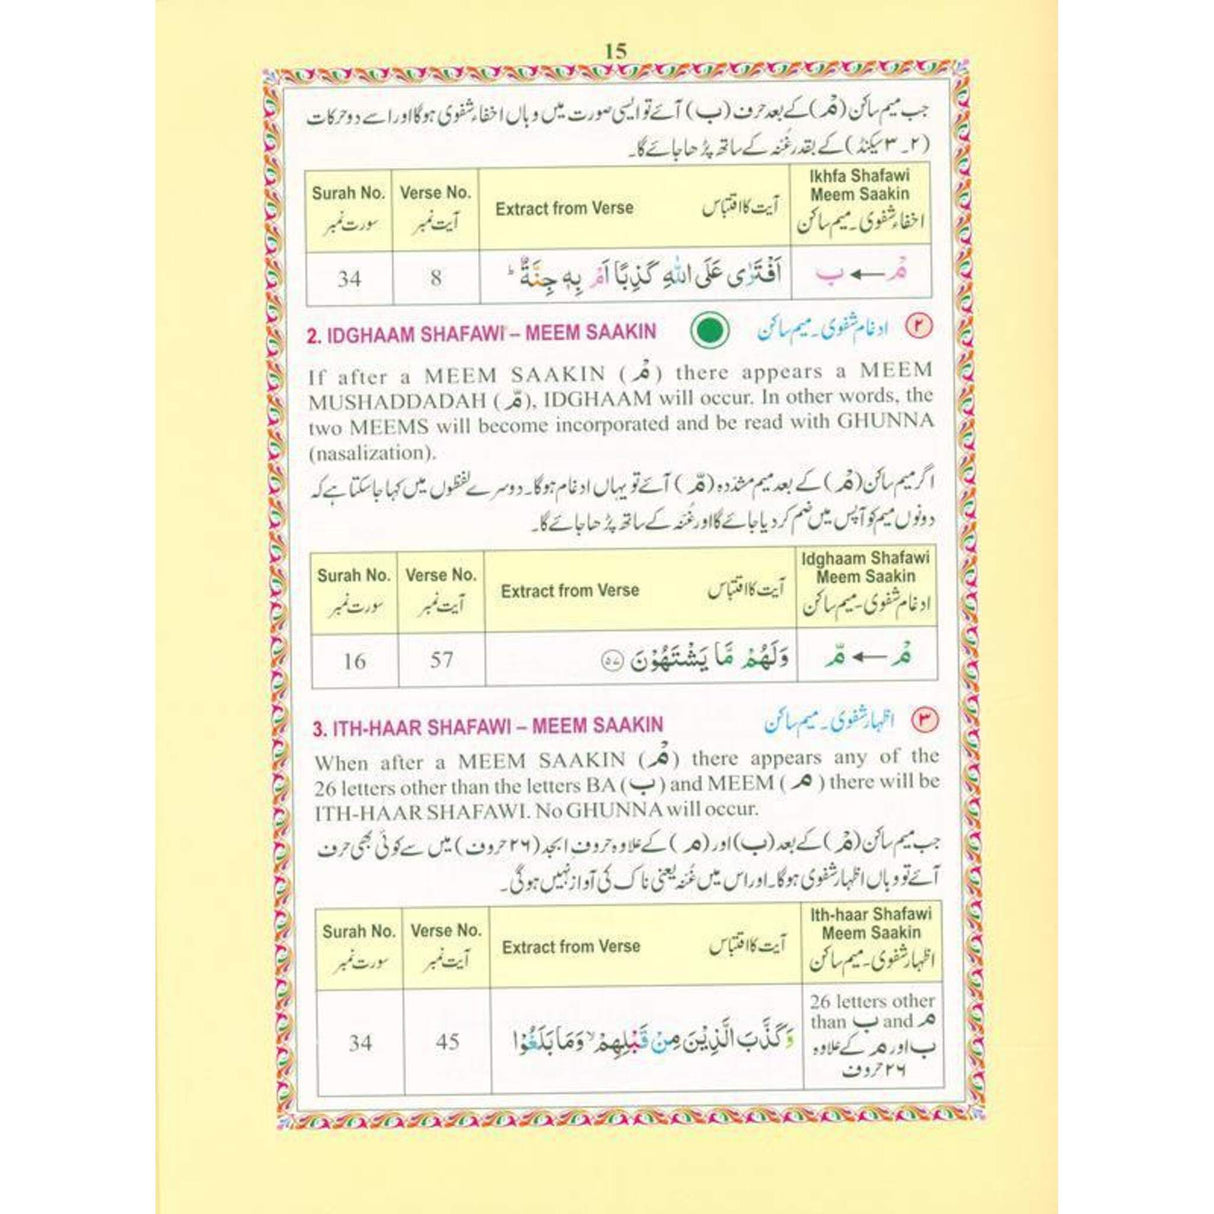 15
جب میم ساکن (مْ) کے بعد حرف (ب) آئے تو ایسی صورت میں وہاں اخفاء شفوی ہوگا اور اسے دو حرکات
(۲۔۳ سیکنڈ) کے بقدر غُنہ کے ساتھ پڑھا جائے گا۔
Surah No. Verse No. Extract from Verse آیت کا اقتباس Ikhfa Shafawi
Meem Saakin
سورت نمبر آیت نمبر اخفاء شفوی۔ میم ساکن
34 8 اَفْتَرٰی عَلَی اللّٰهِ كَذِبًا اَمْ بِهٖ جِنَّةٌ ؕ مْ ← ب
2. IDGHAAM SHAFAWI – MEEM SAAKIN ادغام شفوی۔ میم ساکن ۲
If after a MEEM SAAKIN (مْ) there appears a MEEM
MUSHADDADAH (مّ), IDGHAAM will occur. In other words, the
two MEEMS will become incorporated and be read with GHUNNA
(nasalization).
اگر میم ساکن (مْ) کے بعد میم مشدّدہ (مّ) آئے تو یہاں ادغام ہوگا۔ دوسرے لفظوں میں کہا جا سکتا ہے کہ
دونوں میم کو آپس میں ضم کر دیا جائے گا اور غُنہ کے ساتھ پڑھا جائے گا۔
Surah No. Verse No. Extract from Verse آیت کا اقتباس Idghaam Shafawi
Meem Saakin
سورت نمبر آیت نمبر ادغام شفوی۔ میم ساکن
16 57 وَلَهُمْ مَّا يَشْتَهُوْنَ ۵۷ مْ ← مّ
3. ITH-HAAR SHAFAWI – MEEM SAAKIN اظہار شفوی۔ میم ساکن ۳
When after a MEEM SAAKIN (مْ) there appears any of the
26 letters other than the letters BA (ب) and MEEM (م) there will be
ITH-HAAR SHAFAWI. No GHUNNA will occur.
جب میم ساکن (مْ) کے بعد (ب) اور (م) کے علاوہ حروف ابجد (۲۶ حروف) میں سے کوئی بھی حرف
آئے تو وہاں اظہار شفوی ہوگا۔ اور اس میں غُنہ یعنی ناک کی آواز نہیں ہوگی۔
Surah No. Verse No. Extract from Verse آیت کا اقتباس Ith-haar Shafawi
Meem Saakin
سورت نمبر آیت نمبر اظہار شفوی۔ میم ساکن
34 45 وَكَذَّبَ الَّذِيْنَ مِنْ قَبْلِهِمْ ۙ وَمَا بَلَغُوْا 26 letters other
than ب and م
ب اور م کے علاوہ
۲۶ حروف